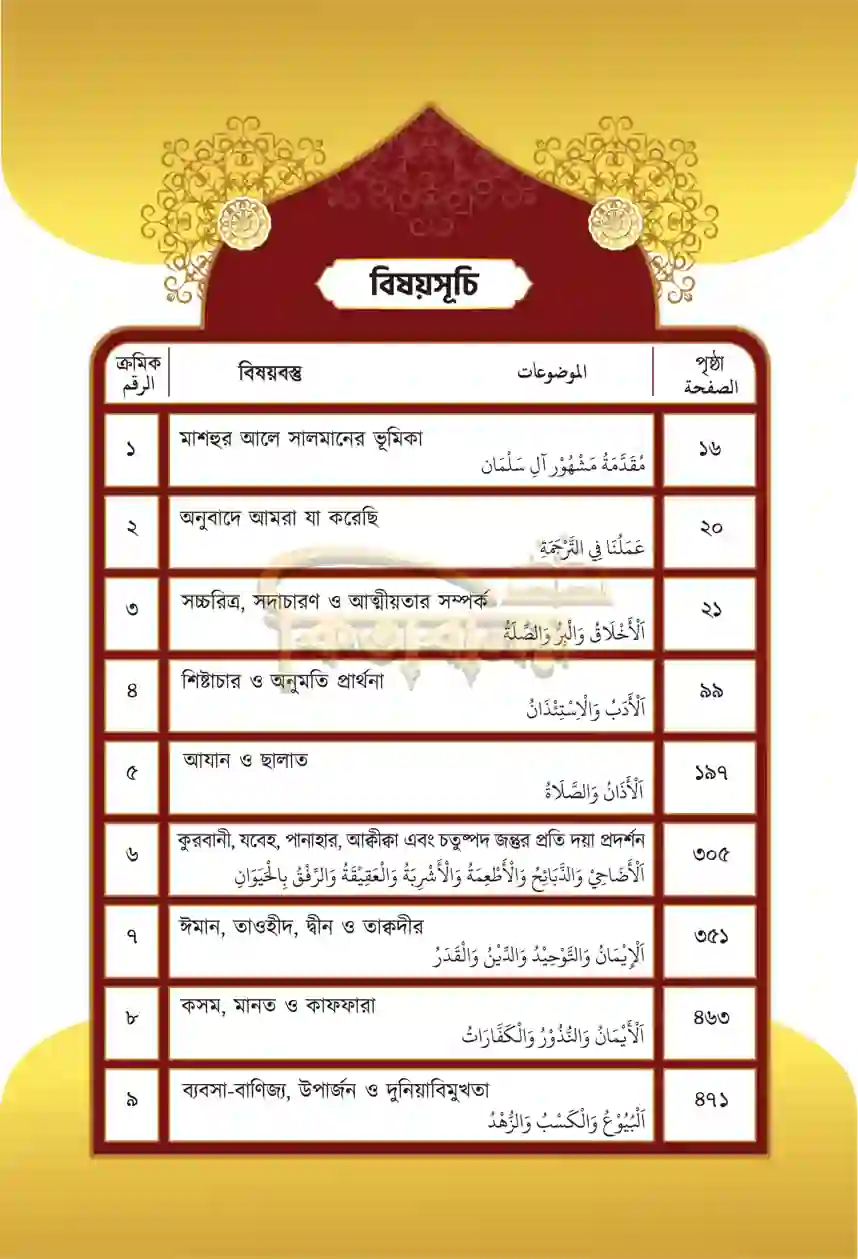 বিষয়সূচি
ক্রমিক
الرقم
বিষয়বস্তু
الموضوعات
পৃষ্ঠা
الصفحة
১
মাশহুর আলে সালমানের ভূমিকা
مُقَدَّمَةُ مَشْهُوْر آلِ سَلْمَان
১৬
২
অনুবাদে আমরা যা করেছি
عَمَلُنَا فِي التَّرْجَمَةِ
২০
৩
সচ্চরিত্র, সদাচারণ ও আত্মীয়তার সম্পর্ক
اَلْأَخْلَاقُ وَالْبِرُّ وَالصِّلَةُ
২১
৪
শিষ্টাচার ও অনুমতি প্রার্থনা
اَلْأَدَبُ وَالْاِسْتِئْذَانُ
৯৯
৫
আযান ও ছালাত
اَلْأَذَانُ وَالصَّلَاةُ
১৯৭
৬
কুরবানী, যবেহ, পানাহার, আক্বীক্বা এবং চতুষ্পদ জন্তুর প্রতি দয়া প্রদর্শন
اَلْأَضَاحِيْ وَالذَّبَائِحُ وَالْأَطْعِمَةُ وَالْأَشْرِبَةُ وَالْعَقِيْقَةُ وَالرِّفْقُ بِالْحَيَوَانِ
৩০৫
৭
ঈমান, তাওহীদ, দ্বীন ও তাক্বদীর
اَلْإِيْمَانُ وَالتَّوْحِيْدُ وَالدِّيْنُ وَالْقَدَرُ
৩৫১
৮
কসম, মানত ও কাফফারা
اَلْأَيْمَانُ وَالنُّذُوْرُ وَالْكَفَّارَاتُ
৪৬৩
৯
ব্যবসা-বাণিজ্য, উপার্জন ও দুনিয়াবিমুখতা
اَلْبُيُوْعُ وَالْكَسْبُ وَالزُّهْدُ
৪৭১